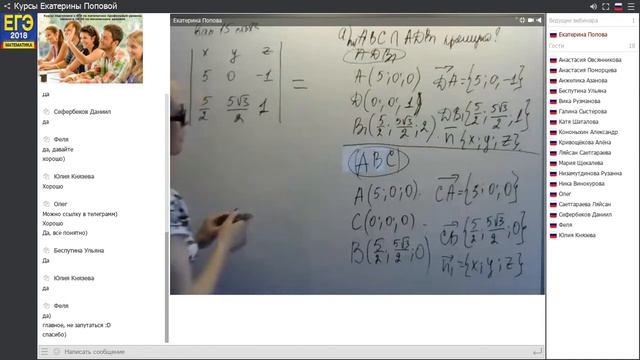 Курсы Екатерины Поповой
ЕГЭ
2018
МАТЕМАТИКА
да
Сефербеков Даниил
да
Феля
да, давайте
хорошо)
Юлия Князева
Хорошо
Олег
Можно ссылку в телеграмм)
Хорошо
Да, все понятно)
Беспутина Ульяна
Да
Юлия Князева
Да
Феля
да)
главное, не запутаться :D
спасибо)
Написать сообщение
Екатерина Попова
x y z
5 0 -1
5/2 5√3/2 1
=
ABC ∩ ADB₁
ADB₁
A(5;0;0) DA={5;0;-1}
D(0;0;1)
B₁(5/2; 5√3/2; 2) DB₁{5/2; 5√3/2; 1}
n{x;y;z}
(ABC)
A(5;0;0) CA={5;0;0}
C(0;0;0)
B(5/2; 5√3/2; 0) CB{5/2; 5√3/2; 0}
n₁={x;y;z}
Ведущие вебинара 1
Екатерина Попова
Гости 18
Анастасия Овсянникова
Анастасия Поморцева
Анжелика Азанова
Беспутина Ульяна
Вика Рузманова
Галина Сыстерова
Катя Шаталова
Кононыхин Александр
Кривощёкова Алёна
Ляйсан Саетгараева
Мария Щекалева
Низамутдинова Рузанна
Ника Винокурова
Олег
Саетгараева Ляйсан
Сефербеков Даниил
Феля
Юлия Князева